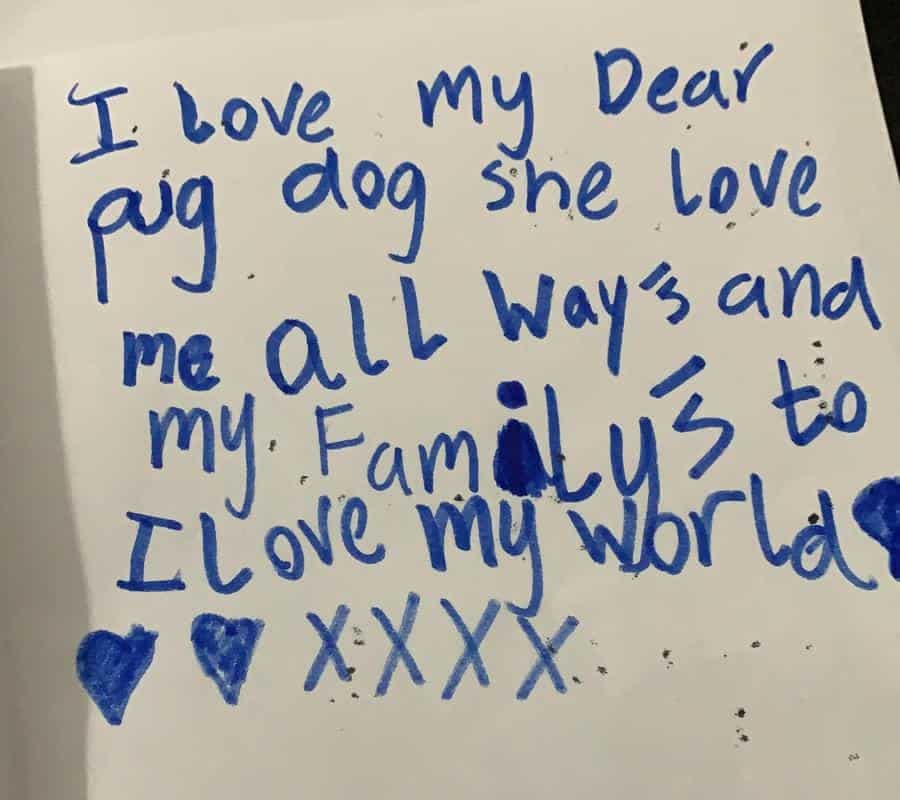 I love my Dear
pug dog she love
me all way's and
my Family's to
I Love my world
XXXX